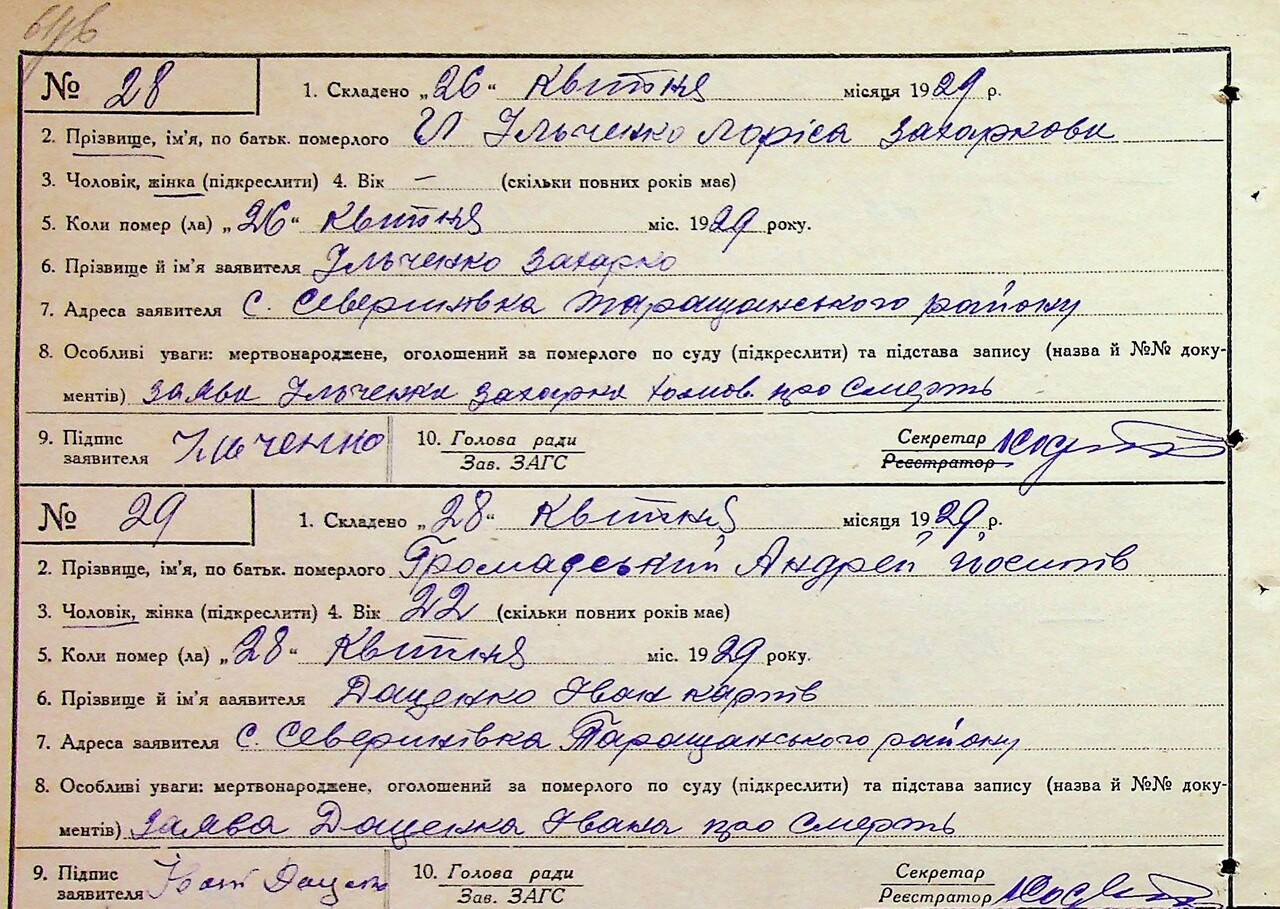 № 28 1. Складено „26“ Квітня місяця 1929 р.
2. Прізвище, ім'я, по батьк. померлого Ільченко Лоріса Захаркова
3. Чоловік, жінка (підкреслити) 4. Вік — (скільки повних років має)
5. Коли помер (ла) „26“ Квітня міс. 1929 року.
6. Прізвище й ім'я заявителя Ільченко Захарко
7. Адреса заявителя с. Северинівка Таращанського району
8. Особливі уваги: мертвонароджене, оголошений за померлого по суду (підкреслити) та підстава запису (назва й №№ доку-
ментів) Заява Ільченка Захарка про Смерть
9. Підпис заявителя Ільченко 10. Голова ради Зав. ЗАГС Секретар Реєстратор
№ 29 1. Складено „28“ Квітня місяця 1929 р.
2. Прізвище, ім'я, по батьк. померлого Громадський Андрей Йосипів
3. Чоловік, жінка (підкреслити) 4. Вік 22 (скільки повних років має)
5. Коли помер (ла) „28“ Квітня міс. 1929 року.
6. Прізвище й ім'я заявителя Даценко Іван Карпів
7. Адреса заявителя с. Северинівка Таращанського району
8. Особливі уваги: мертвонароджене, оголошений за померлого по суду (підкреслити) та підстава запису (назва й №№ доку-
ментів) Заява Даценка Івана про Смерть
9. Підпис заявителя Іван Даценко 10. Голова ради Зав. ЗАГС Секретар Реєстратор